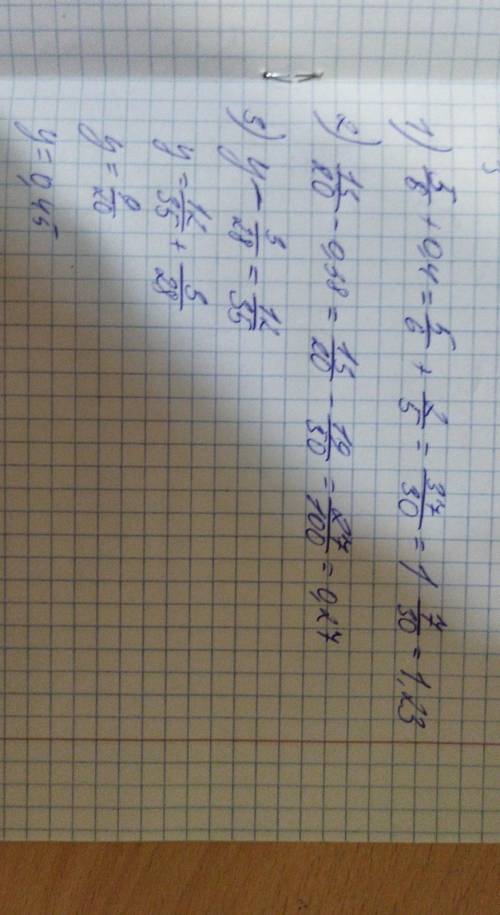 1) 5/6 + 0,4 = 5/6 + 2/5 = 37/30 = 1 7/30 = 1,23
2) 13/20 - 0,38 = 13/20 - 19/50 = 27/100 = 0,27
3) y - 3/28 = 12/35
y = 12/35 + 3/28
y = 9/20
y = 0,45